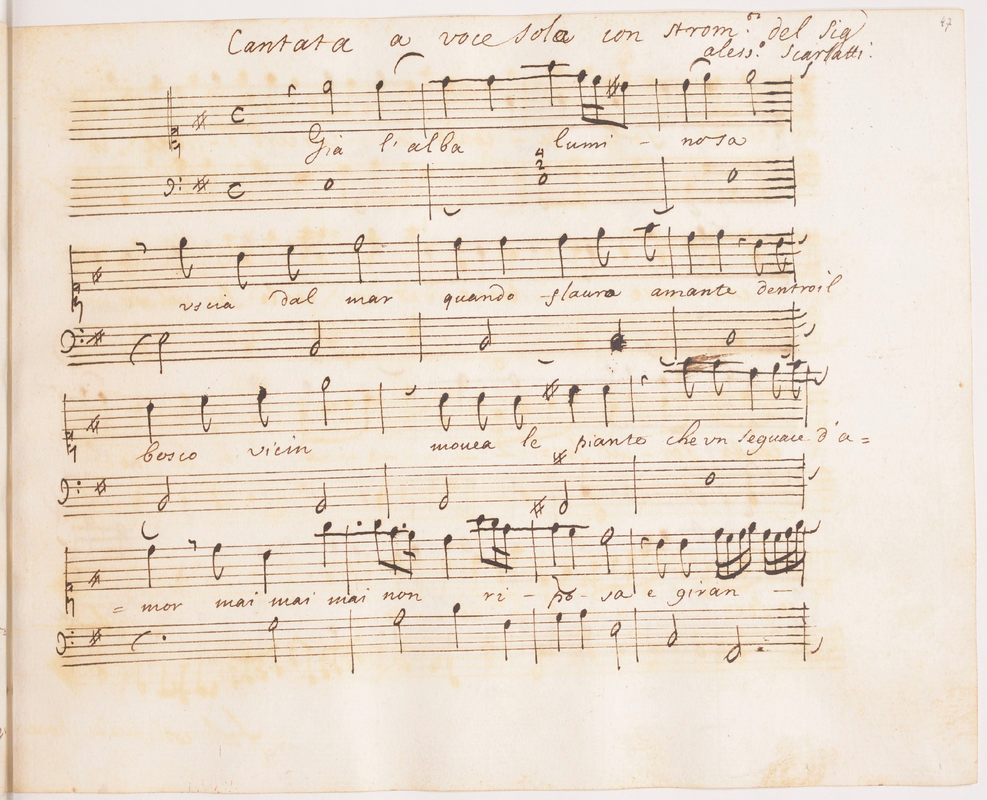 47
Cantata a voce sola con strom.ti del Sig
aless.o Scarlatti.
Già l'alba lumi - nosa
4
2
vscia dal mar quando l'aura amante dentro il
bosco vicin movea le piante che vn seguace d'a=
= mor mai mai mai non ri - po - sa e giran -